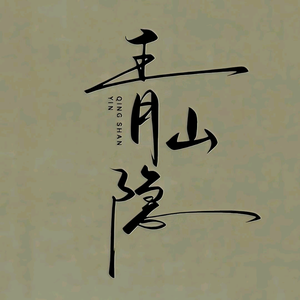 青山隐
QING SHAN
YIN